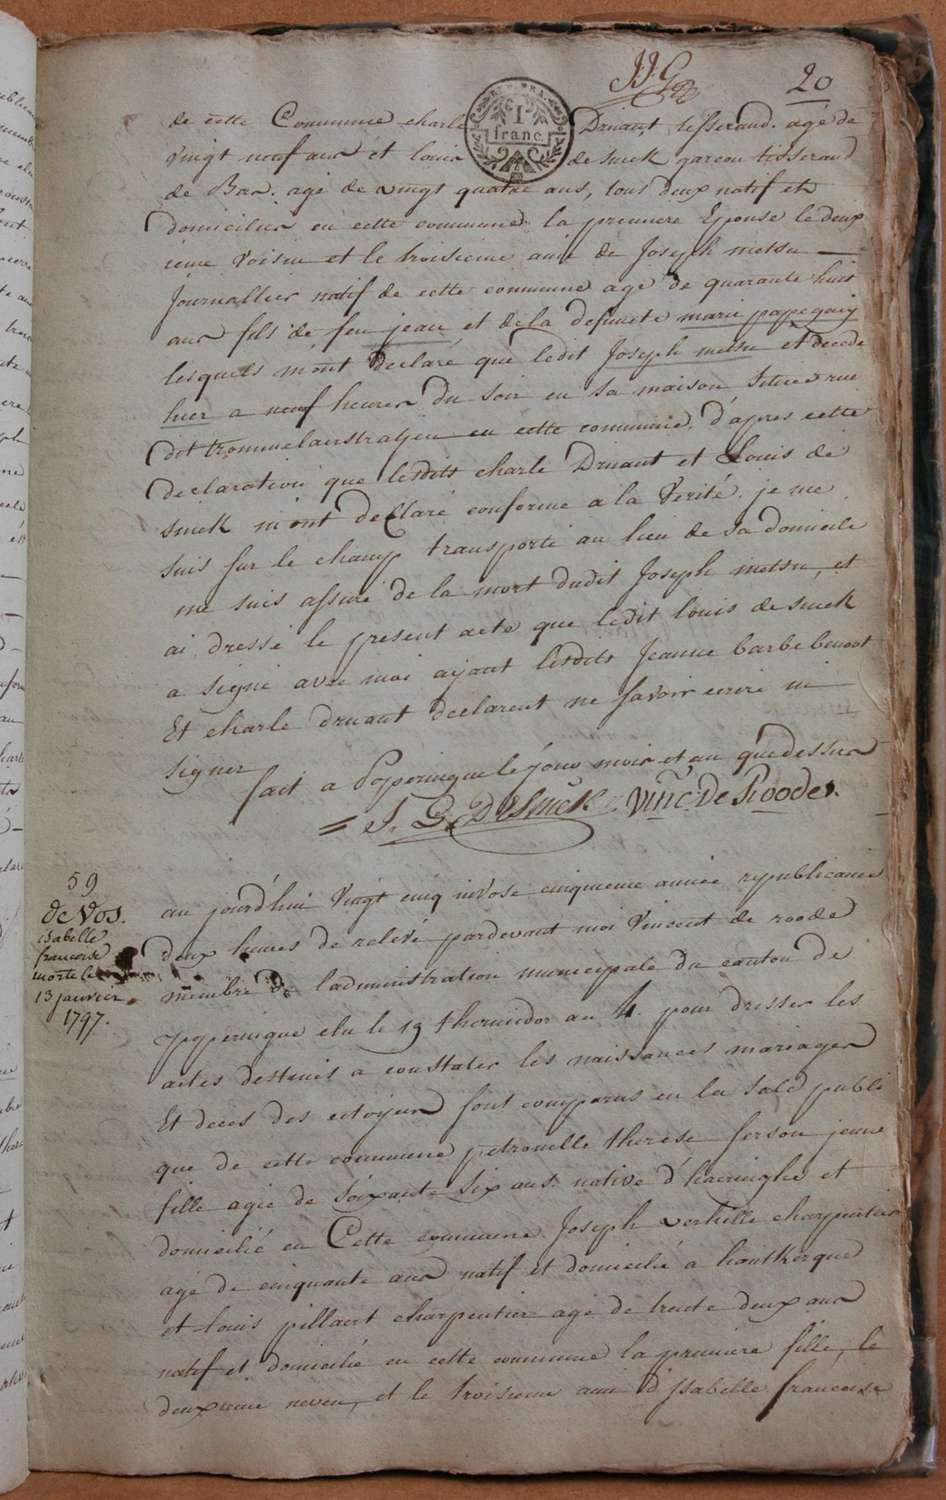 20
REP. FRA.
1
franc.
de cette Commune charle Druant tisserand. agé de
vingt neuf ans et louis de smek garcon tisserand
de Bas. agé de vingt quatre ans, tous deux natif et
domicilier en cette commune la premiere Epouse le deux
ieme voisin et le troisieme amie de Joseph metsu —
Journallier natif de cette commune agé de quarante huit
ans fils de feu jean et de la defuncte marie papegaiy
lesquels m'ont declaré que ledit Joseph metsu et decede
hier a neuf heures du soir en sa maison situee rue
dit trommelaerstraetjen en cette commune, d'apres cette
declaration que lesdits charle Druant et Louis de
smek m'ont declaré conforme a la Verité. je me
suis sur le champ transporté au lieu de sa domicile
me suis assuré de la mort dudit Joseph metsu, et
ai dressé le present acte que ledit louis de smek
a signé avec moi ayant lesdits Jeanne barbe benoot
Et charle druant declarent ne savoir ecrire ni
signer
fait a Poperingue le jour mois et an que dessus
= J. G. DeSmeck Vinc. De Roode.
59
de vos.
isabelle
francoise
morte le
13 janvier
1797.
au jourd'hui vingt cinq nivose cinquieme année republicaine
deux heures de relevé pardevant moi Vincent de roode
membre de l'administration municipale du canton de
poperingue elu le 19 thermidor an 4. pour dresser les
actes destinés a constater les naissances mariages
Et deces des citoyens sont comparus en la sale publi
que de cette commune petronelle therese ferson jeune
fille agée de soixante six ans. native d'haeringhe et
domicilié en Cette commune. Joseph verhille charpentier
agé de cinquante ans natif et domicilié a houtkerque
et louis pillaert charpentier agé de trente deux ans
natif et domicilié en cette commune la premiere fille, le
deuxieme neveu, et le troisieme ami d'Isabelle francoise